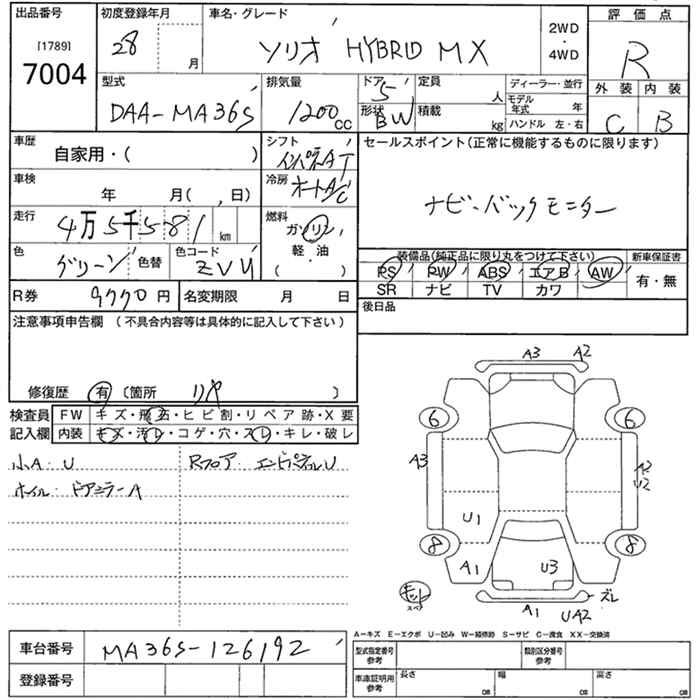 出品番号 初度登録年月 車名・グレード 2WD・4WD 評価点
[1789] 28 月 ソリオ HYBRID MX R
7004
型式 排気量 ドア 定員 ディーラー・並行 外装 内装
DAA-MA36S 1200 CC 5 人 モデル年式 年 C B
形状 積載
BW kg ハンドル 左・右
車歴 シフト セールスポイント(正常に機能するものに限ります)
自家用・( ) インパネAT
車検 冷房 ナビ・バックモニター
年 月( , 日) オートA/C
走行 燃料
4万5千581 km ガソリン
軽・油
( )
色 色替 色コード 装備品(純正品に限り丸をつけて下さい) 新車保証書
グリーン ZVU PS PW ABS エアB AW 有・無
SR ナビ TV カワ
R券 9770円 名変期限 月 日 後日品
注意事項申告欄 (不具合内容等は具体的に記入して下さい)
修復歴 有 〔箇所 リヤ )
検査員 FW キズ・飛石・ヒビ割・リペア跡・X要
記入欄 内装 キズ・汚レ・コゲ・穴・スレ・キレ・破レ
小A・U Rフロア エンドパネルU
ホイル・ドアミラーA
A3 A2
6 6
A3 A2
U2
U1
8 8
A1 U3
キット
スペア
ズレ
A1 UA2
A-キズ E-エクボ U-凹み W-補修跡 S-サビ C-腐食 XX-交換済
車台番号 MA36S-126192 型式指定番号 参考 類別区分番号 参考
登録番号 車庫証明用 参考 長さ cm 幅 cm 高さ cm